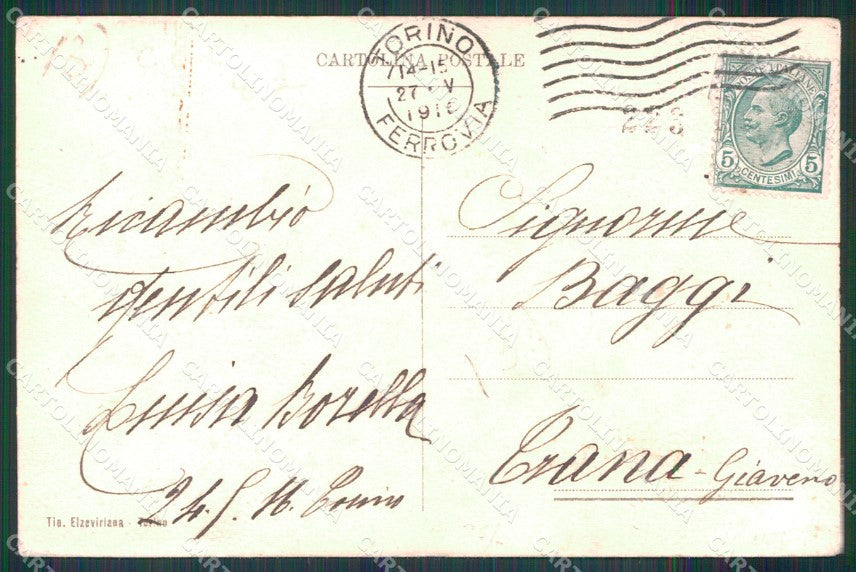 CARTOLINA POSTALE
TORINO
14-15
27 V
1916
FERROVIA
POSTE ITALIANE
5 5
CENTESIMI
Ricambio
gentili saluti
Luisa Borella
24.5.16. Torino
Signorine
Baggi
Trana - Giaveno
Tip. Elzeviriana - Torino
CARTOLINOMANIA